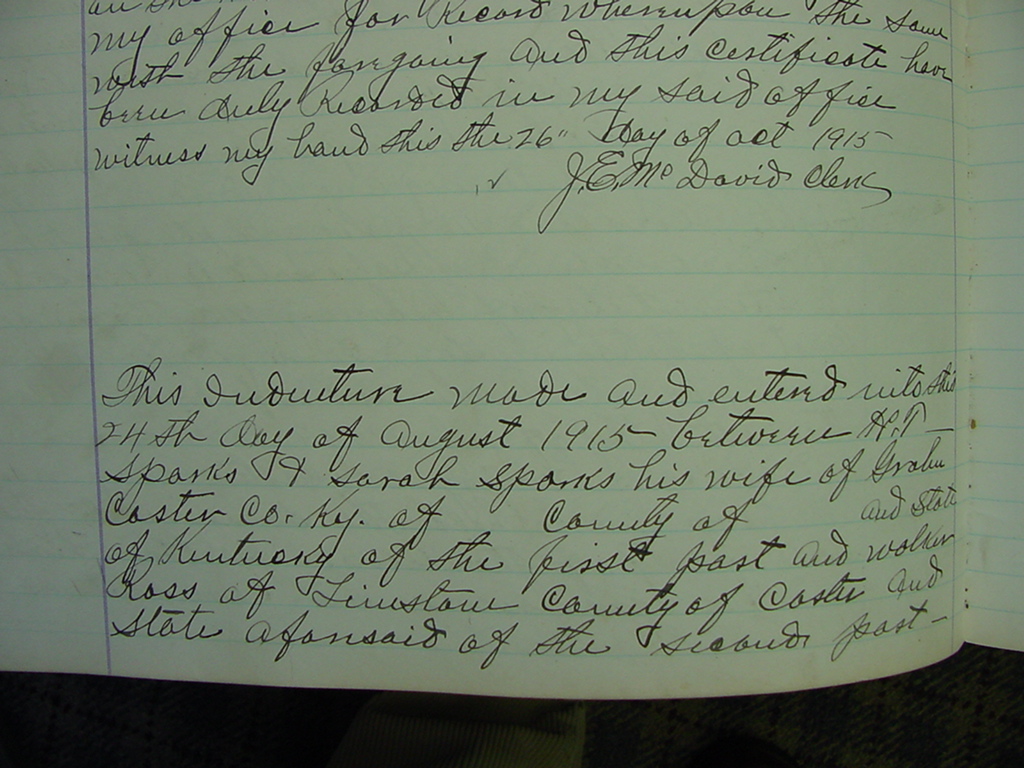 my office for Record whereupon the same
with the forgoing and this certificate have
been duly Recorded in my said office
witness my hand this the 26" day of oct 1915
J.E. McDavid Clerk
This Indenture made and entered into this
24th day of August 1915 between H.T
Sparks & Sarah Sparks his wife of Grahn
Carter Co. Ky. of County of and State
of Kentucky of the first part and Walker
Ross of Limestone County of Carter and
State aforesaid of the second part -